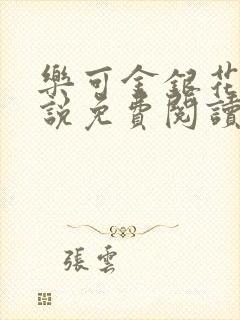 樂可金銀花
說免費閱讀
張雲